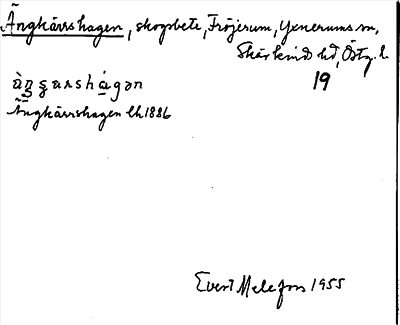 Ängkärrshagen, skogsbete, Fröjerum, Yxnerums sn,
Skärkinds hd, Östg. l.
19
Ängkärrshagen lk 1886
Evert Melefors 1955